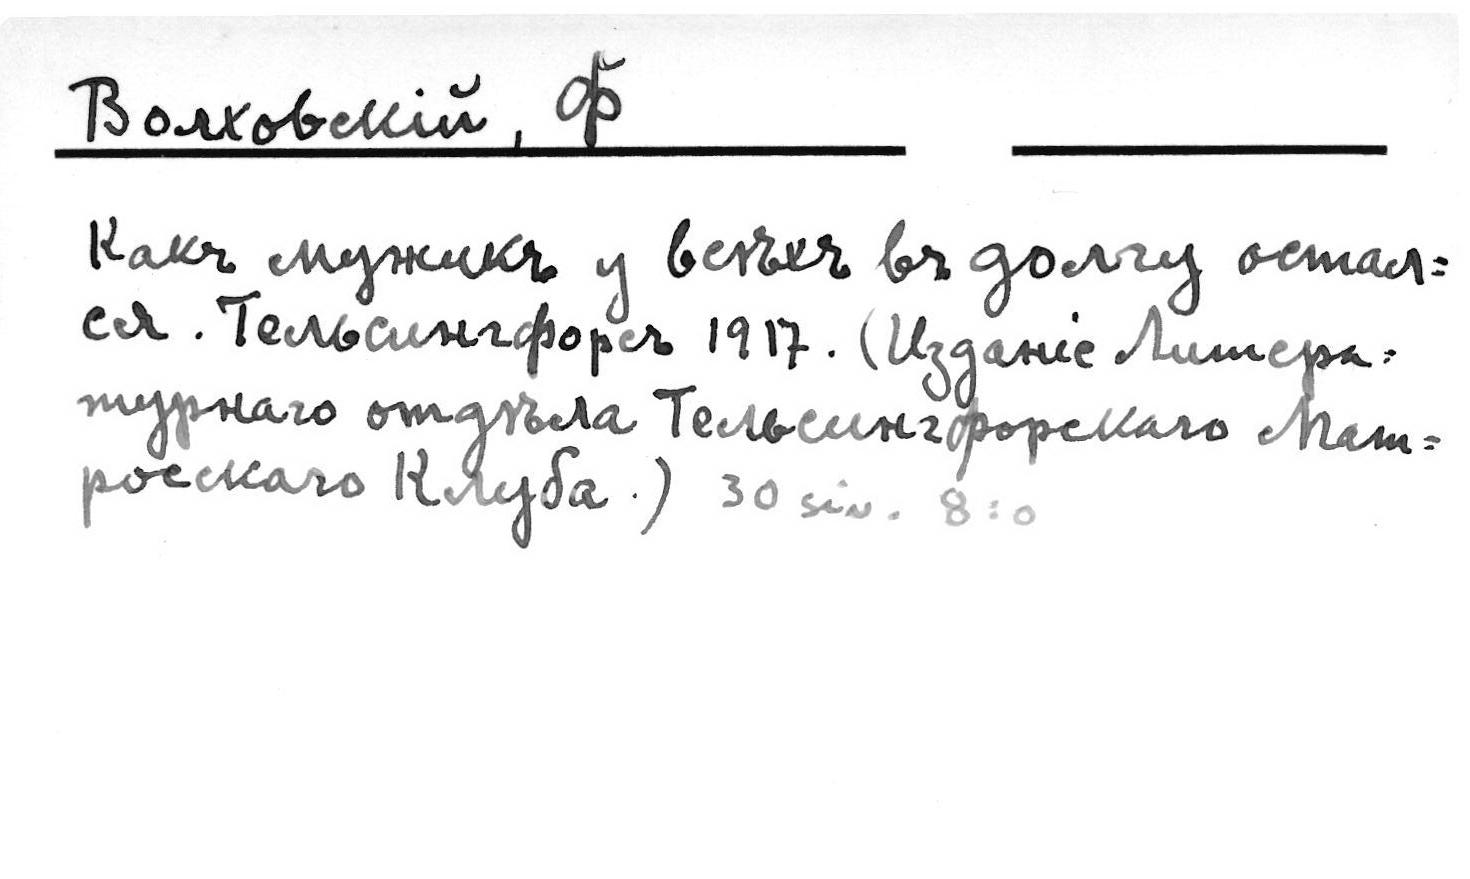 Волховскій, Ф
Какъ мужикъ у всѣхъ въ долгу остал=
ся. Гельсингфорсъ 1917. (Изданіе Литера=
турнаго отдѣла Гельсингфорскаго Мат=
росскаго Клуба.) 30 siv. 8:o